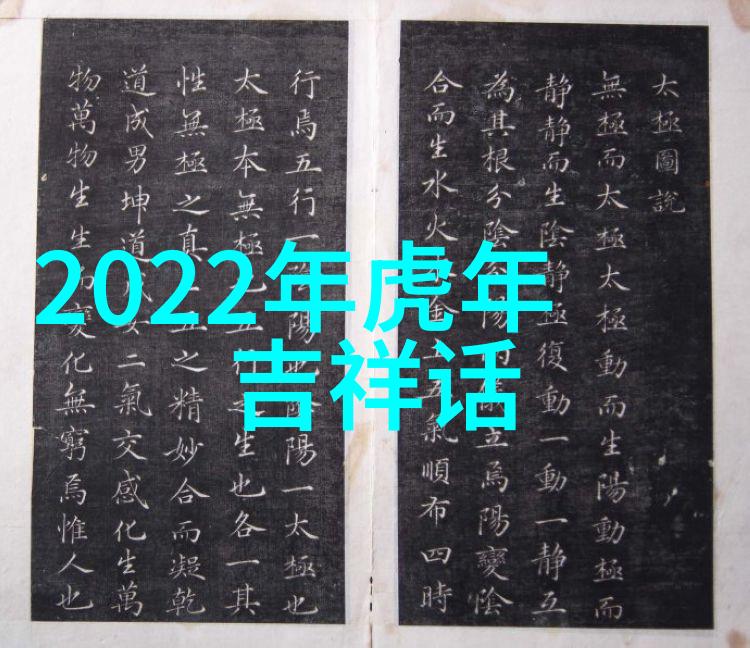 2022年虎年
吉祥话
太極圖說
無極而太極太極動而生陽動極而
静静而生陰静極復動一動一静互
為其根分陰陽立焉陽變陰
合而生水火金五氣順布四時
行焉五行一陰陽也陰陽一太極也
太極本無極五行之生也各一其
性無極之真五之精妙合而凝乾
道成男坤道女二氣交感化生萬
物萬物生生變化無窮焉惟人也